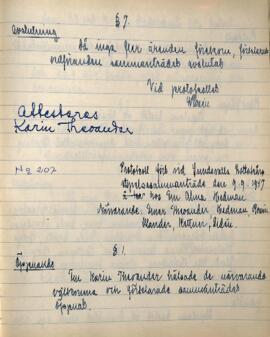 § 7.
Avslutning
Då inga fler ärenden förekom, förklarade
ordföranden sammanträdet avslutat
Vid protokollet
Attesteras
Karin Thevander
No 207
Protokoll fört vid Sundsvalls
styrelsesammanträde den 9.9.1957
hos Fru Alma Hedman
Närvarande: Fruar Thevander Hedman
§ 1.
Öppnande
Fru Karin Thevander hälsade de närvarande
välkomna och förklarade sammanträdet
öppnat.